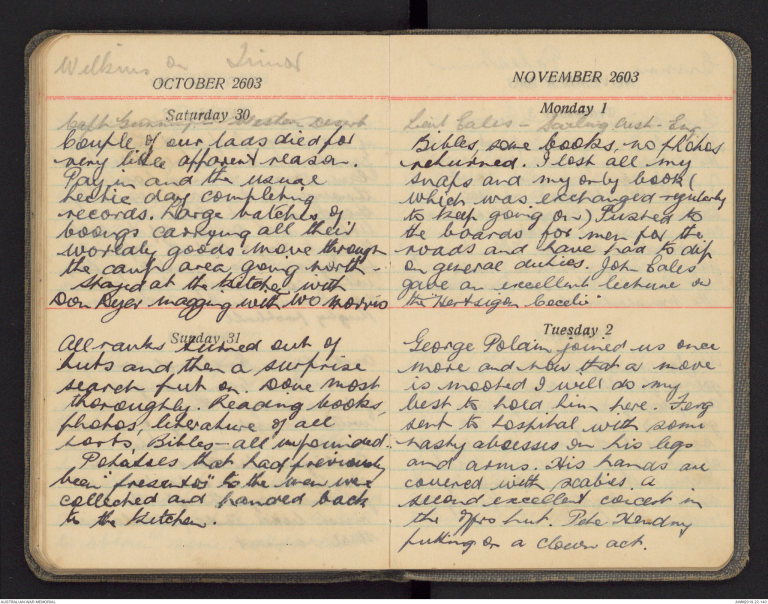 Wilkins on Timor
OCTOBER 2603
Saturday 30
Capt Gunning - Western Desert
Couple of our lads died for
very little apparent reason.
Pay in and the usual
hectic day completing
records. Large batches of
boongs carrying all their
worldly goods move through
the camp area going north -
Stayed at the kitchen with
Don Dyer magging with WO Morris
Sunday 31
All ranks turned out of
huts and then a surprise
search put on. Done most
thoroughly. Reading books,
photos, literature of all
sorts, Bibles - all impounded.
Potatoes that had previously
been "presented" to the men were
collected and handed back
to the kitchen.
NOVEMBER 2603
Monday 1
Lieut Eales - Sailing Aust - Eng
Bibles, some books, no photos
returned. I lost all my
snaps and my only book (
which was exchanged regularly
to keep going on) Rushed to
the boards for men for the
roads and have had to dip
on general duties. John Eales
gave an excellent lecture on
the "Herzogin Cecelie"
Tuesday 2
George Polain joined us once
more and now that a move
is mooted I will do my
best to hold him here. Ferg
sent to hospital with some
nasty abscesses on his legs
and arms. His hands are
covered with scabies. A
second excellent concert in
the hut. Pete Hendry
putting on a clown act.
AUSTRALIAN WAR MEMORIAL